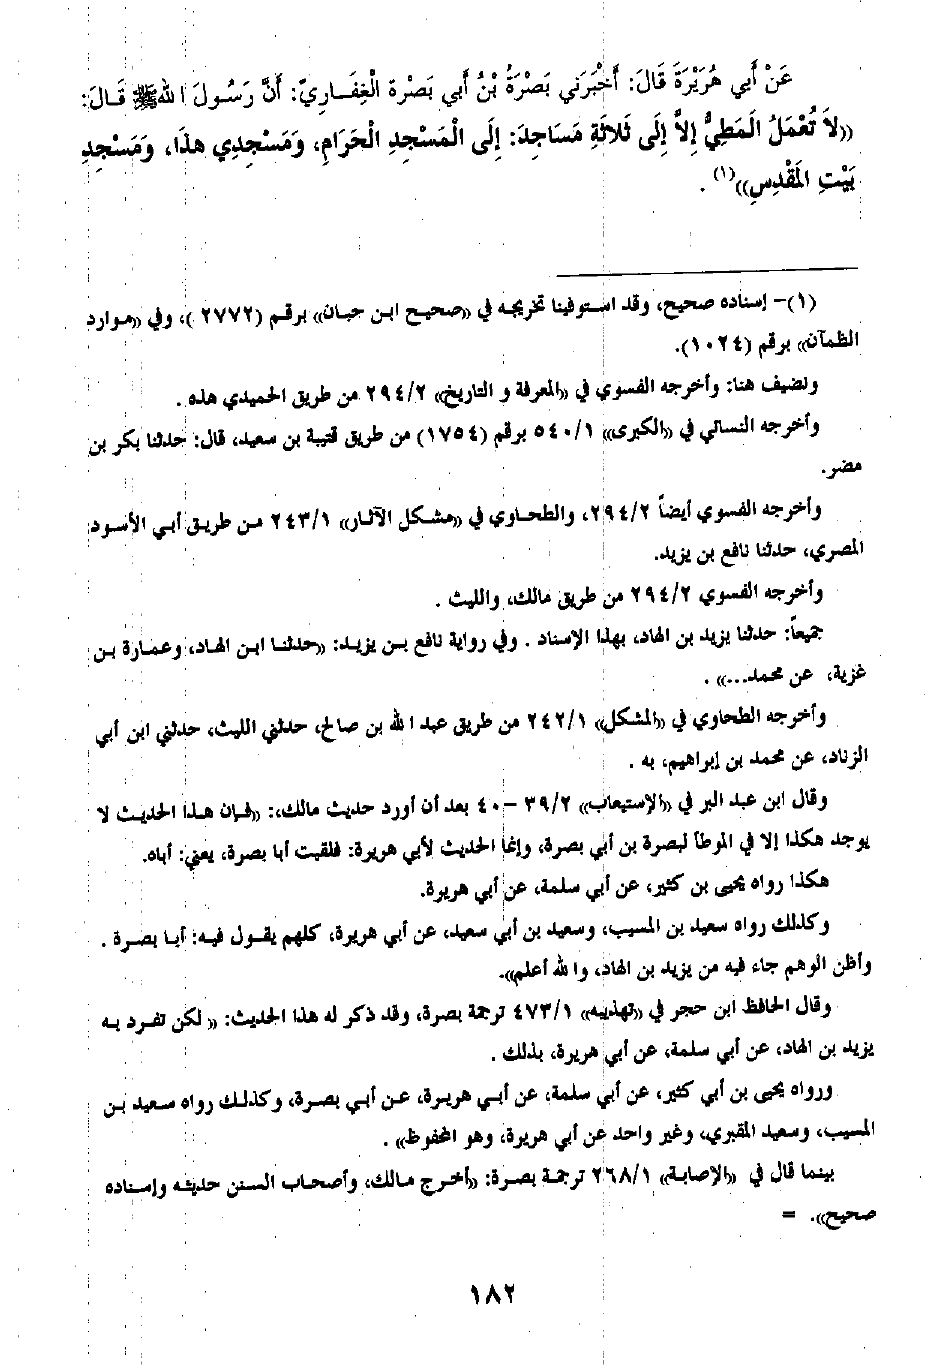 عَنْ أَبِي هُرَيْرَةَ قَالَ: أَخْبَرَنِي بَصْرَةُ بْنُ أَبِي بَصْرَة الْغِفَــارِيّ: أَنَّ رَسُولَ اللهﷺ قَـالَ:
((لاَ تُعْمَلُ الْمَطِيُّ إِلاَّ إِلَى ثَلاثَةِ مَسَاجِدَ: إِلَى الْمَسْجِدِ الْحَرَامِ، وَمَسْجِدِي هذَا، وَمَسْجِدِ
بَيْتِ الْمَقْدِسِ))(١) .
(١)- إسناده صحيح، وقد استوفينا تخريجه في ((صحيح ابن حبان)) برقم (٢٧٧٢ )، وفي ((موارد
الظمآن)) برقم (١٠٢٤).
ونضيف هنا: وأخرجه الفسوي في ((المعرفة و التاريخ)) ٢٩٤/٢ من طريق الحميدي هذه .
وأخرجه النسائي في ((الكبرى)) ٥٤٠/١ برقم (١٧٥٤) من طريق قتيبة بن سعيد، قال: حدثنا بكر بن
مضر.
وأخرجه الفسوي أيضاً ٢٩٤/٢، والطحاوي في ((مشكل الآثار)) ٢٤٣/١ من طريق أبي الأسود
المصري، حدثنا نافع بن يزيد.
وأخرجه الفسوي ٢٩٤/٢ من طريق مالك، والليث .
جميعاً: حدثنا يزيد بن الهاد، بهذا الإسناد . وفي رواية نافع بن يزيد: ((حدثنا ابن الهاد، وعمارة بن
غزية، عن محمد...)) .
وأخرجه الطحاوي في ((المشكل)) ٢٤٢/١ من طريق عبد الله بن صالح، حدثني الليث، حدثني ابن أبي
الزناد، عن محمد بن إبراهيم، به .
وقال ابن عبد البر في ((الإستيعاب)) ٣٩/٢ -٤٠ بعد أن أورد حديث مالك،: ((فإن هذا الحديث لا
يوجد هكذا إلا في الموطأ لبصرة بن أبي بصرة، وإنما الحديث لأبي هريرة: فلقيت أبا بصرة، يعني: أباه.
هكذا رواه يحيى بن كثير، عن أبي سلمة، عن أبي هريرة.
وكذلك رواه سعيد بن المسيب، وسعيد بن أبي سعيد، عن أبي هريرة، كلهم يقول فيه: أبا بصرة .
وأظن الوهم جاء فيه من يزيد بن الهاد، والله أعلم)).
وقال الحافظ ابن حجر في ((تهذيبه)) ٤٧٣/١ ترجمة بصرة، وقد ذكر له هذا الحديث: (( لكن تفرد به
يزيد بن الهاد، عن أبي سلمة، عن أبي هريرة، بذلك .
ورواه يحيى بن أبي كثير، عن أبي سلمة، عن أبي هريرة، عن أبي بصرة، وكذلك رواه سعيد بن
المسيب، وسعيد المقبري، وغير واحد عن أبي هريرة، وهو المحفوظ)) .
بينما قال في ((الإصابة)) ٢٦٨/١ ترجمة بصرة: ((أخرج مالك، وأصحاب السنن حديثه وإسناده
صحيح)). =
١٨٢